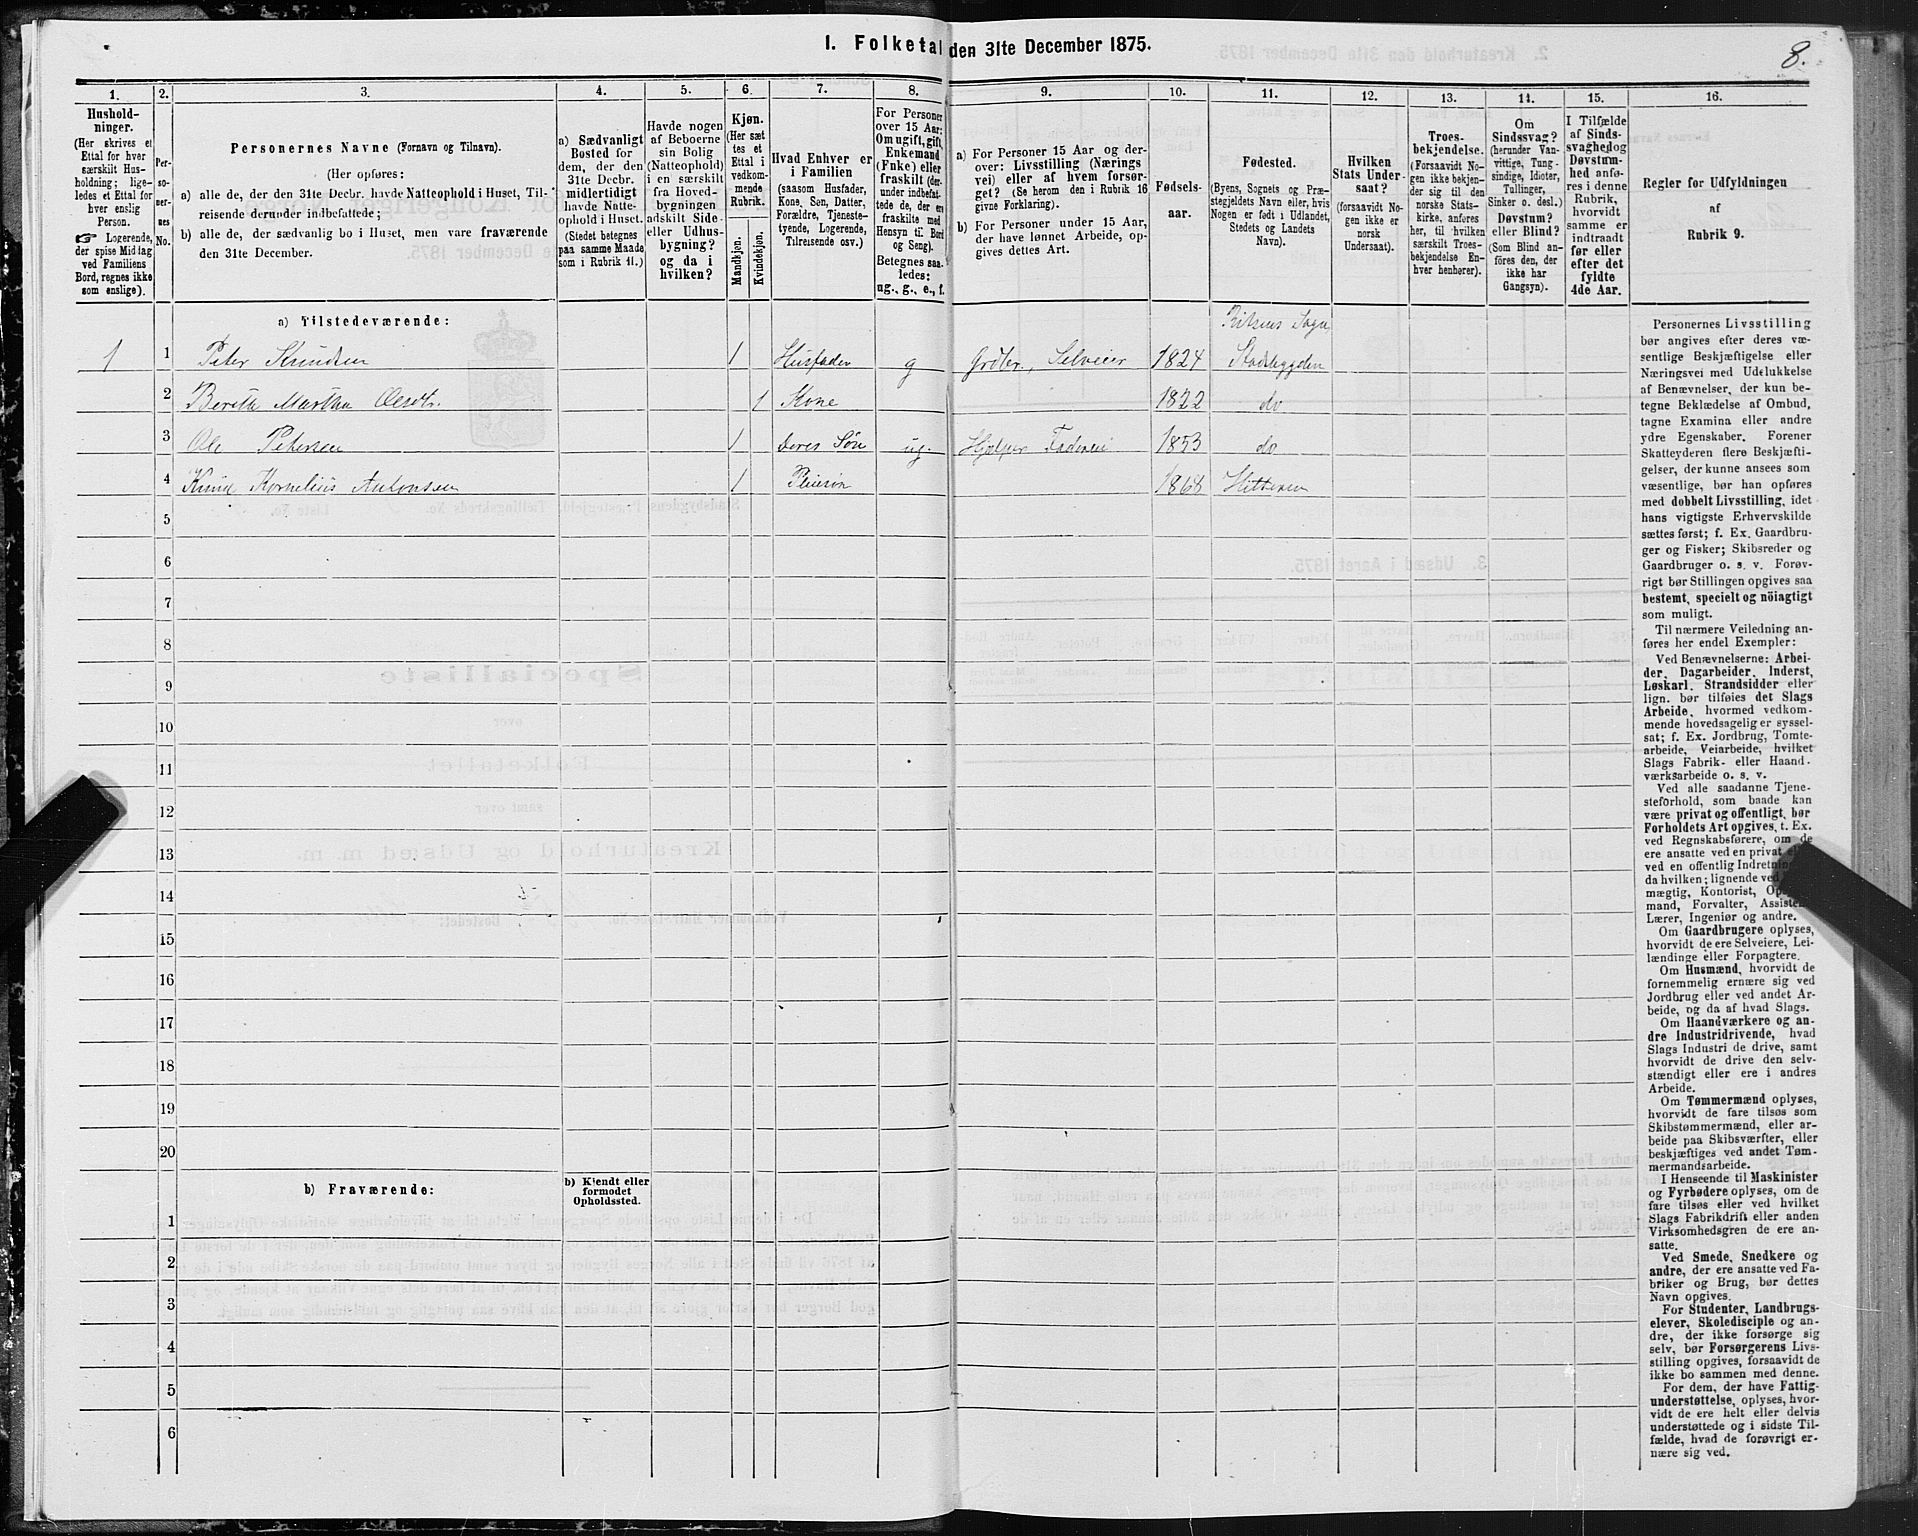 I. Folketal den 31te December 1875.
8.
1.
2.
3.
4.
5.
6.
7.
8.
9.
10.
11.
12.
13.
14.
15.
16.
Hushold-
ninger.
(Her skrives et
Ettal for hver
særskilt Hus-
holdning; lige-
ledes et Ettal for
hver enslig
Person.
☞ Logerende,
der spise Middag
ved Familiens
Bord, regnes ikke
som enslige).
Per-
so-
ner-
nes
No.
Personernes Navne (Fornavn og Tilnavn).
(Her opføres:
a) alle de, der den 31te Decbr. havde Natteophold i Huset, Til-
reisende derunder indbefattede;
b) alle de, der sædvanlig bo i Huset, men vare fraværende
den 31te December.
a) Sædvanligt
Bosted for
dem, der den
31te Decbr.
midlertidigt
havde Natte-
ophold i Huset.
(Stedet betegnes
paa samme Maade
som i Rubrik 11.)
Havde nogen
af Beboerne
sin Bolig
(Natteophold)
i en særskilt
fra Hoved-
bygningen
adskilt Side-
eller Udhus-
bygning?
og da i
hvilken?
Kjøn.
(Her sæt
tes et
Ettal i
vedkom-
mende
Rubrik.
Mandkjøn.
Kvindekjøn.
Hvad Enhver er
i Familien
(saasom Husfader,
Kone, Søn, Datter,
Forældre, Tjeneste-
tyende, Logerende,
Tilreisende osv.)
For Personer
over 15 Aar:
Om ugift, gift,
Enkemand
(Enke) eller
fraskilt (der-
under indbefat-
tede de, der ere
fraskilte med
Hensyn til Bord
og Seng).
Betegnes saa-
ledes:
ug., g., e., f.
a) For Personer 15 Aar og der-
over: Livsstilling (Nærings
vei) eller af hvem forsør-
get? (Se herom den i Rubrik 16
givne Forklaring).
b) For Personer under 15 Aar,
der have lønnet Arbeide, op-
gives dettes Art.
Fødsels-
aar.
Fødested.
(Byens, Sognets og Præ-
stegjeldets Navn eller, hvis
Nogen er født i Udlandet,
Stedets og Landets
Navn).
Hvilken
Stats Under-
saat?
(forsaavidt No-
gen ikke er
norsk
Undersaat).
Troes-
bekjendelse.
(Forsaavidt No-
gen ikke bekjen-
der sig til den
norske Stats-
kirke, anføres
her, til hvilken
særskilt Troes-
bekjendelse En-
hver henhører).
Om
Sindssvag?
(herunder Van-
vittige, Tung-
sindige, Idioter,
Tullinger,
Sinker o. desl.)
Døvstum?
eller Blind?
(Som Blind an-
føres den, der
ikke har
Gangsyn).
I Tilfælde
af Sinds-
svaghed og
Døvstum-
hed anfø-
res i denne
Rubrik,
hvorvidt
samme er
indtraadt
før eller
efter det
fyldte
4de Aar.
Regler for Udfyldningen
af
Rubrik 9.
a) Tilstedeværende:
Ritsens Sogn
1 1 Peter Knudsen 1 Husfader g Grdbr., Selveier 1824 Stadsbygden
2 Berith Martha Olesdtr. 1 Kone 1822 do
3 Ole Petersen 1 Deres Søn ug. Hjælper Faderen 1853 do
4 Knud Kornelius Antonsen 1 Pleiesøn 1868 Hitteren
5
6
7
8
9
10
11
12
13
14
15
16
17
18
19
20
b) Fraværende:
b) Kjendt eller
formodet
Opholdssted.
1
2
3
4
5
6
Personernes Livsstilling
bør angives efter deres væ-
sentlige Beskjæftigelse eller
Næringsvei med Udelukkelse
af Benævnelser, der kun be-
tegne Beklædelse af Ombud,
tagne Examina eller andre
ydre Egenskaber. Forener
Skatteyderen flere Beskjæfti-
gelser, der kunne ansees som
væsentlige, bør han opføres
med dobbelt Livsstilling, idet
hans vigtigste Erhvervskilde
sættes først; f. Ex. Gaardbru-
ger og Fisker; Skibsreder og
Gaardbruger o. s. v. Forøv-
rigt bør Stillingen opgives saa
bestemt, specielt og nöiagtigt
som muligt.
Til nærmere Veiledning an-
føres her endel Exempler:
Ved Benævnelserne: Arbei-
der, Dagarbeider, Inderst,
Løskarl, Strandsidder eller
lign. bør tilføies det Slags
Arbeide, hvormed vedkom-
mende hovedsagelig er syssel-
sat; f. Ex. Jordbrug, Tomte-
arbeide, Veiarbeide, hvilket
Slags Fabrik- eller Haand-
værksarbeide o. s. v.
Ved alle saadanne Tjene-
steforhold, som baade kan
være privat og offentligt, bør
Forholdets Art opgives, t. Ex.
ved Regnskabsførere, om de
ere ansatte ved en privat
ved en offentlig
da hvilken; lignende ved
mægtig, Kontorist,
mand, Forvalter,
Lærer, Ingeniør og andre.
Om Gaardbrugere oplyses,
hvorvidt de ere Selveiere, Lei-
lændinge eller Forpagtere.
Om Husmænd, hvorvidt de
fornemmelig ernære sig ved
Jordbrug eller ved andet Ar-
beide, og da af hvad Slags.
Om Haandværkere og an-
dre Industridrivende, hvad
Slags Industri de drive, samt
hvorvidt de drive den selv-
stændigt eller ere i andres
Arbeide.
Om Tømmermænd oplyses,
hvorvidt de fare tilsøs som
Skibstømmermænd, eller ar-
beide paa Skibsværfter, eller
beskjæftiges ved andet Tøm-
mermandsarbeide.
I Henseende til Maskinister
og Fyrbødere oplyses, om de
fare tilsøs eller ved hvilket
Slags Fabrikdrift eller anden
Virksomhedsgren de ere an-
satte.
Ved Smede, Snedkere og
andre, der ere ansatte ved Fa-
briker og Brug, bør dettes
Navn opgives.
For Studenter, Landbrugs-
elever, Skoledisciple og an-
dre, der ikke forsørge sig
selv, bør Forsørgerens Livs-
stilling opgives, forsaavidt de
ikke bo sammen med denne.
For dem, der have Fattig-
understøttelse, oplyses, hvor-
vidt de ere helt eller delvis
understøttede og i sidste Til-
fælde, hvad de forøvrigt er-
nære sig ved.